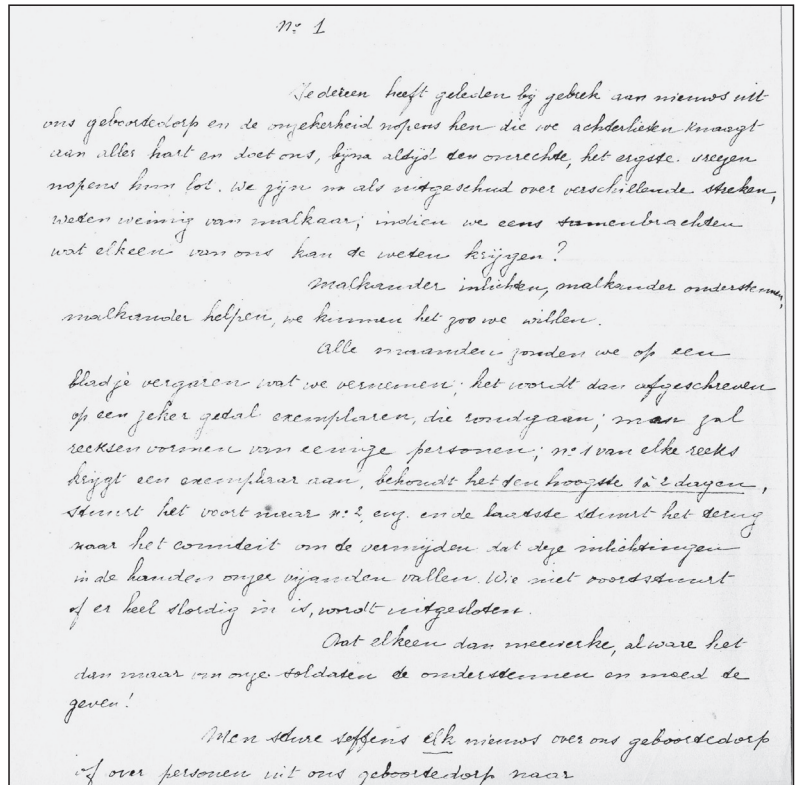 No 1
Iedereen heeft geleden bij gebrek aan nieuws uit
ons geboortedorp en de onzekerheid nopens hen die we achterlieten knaagt
aan aller hart en doet ons, bijna altijd ten onrechte, het ergste vreezen
nopens hun lot. We zijn nu als uitgeschud over verschillende streken,
weten weinig van malkaar; indien we eens samenbrachten
wat elkeen van ons kan te weten krijgen?
Malkander inlichten, malkander ondersteunen,
malkander helpen, we kunnen het zoo we willen.
Alle maanden zouden we op een
bladje vergaren wat we vernemen; het wordt dan afgeschreven
op een zeker getal exemplaren, die rondgaan; men zal
reeksen vormen van eenige personen; no 1 van elke reeks
krijgt een exemplaar aan, behoudt het ten hoogste 1 à 2 dagen,
stuurt het voort naar no 2, enz. en de laatste stuurt het terug
naar het comiteit om te vermijden dat deze inlichtingen
in de handen onzer vijanden vallen. Wie niet voortstuurt
of er heel slordig in is, wordt uitgesloten.
Dat elkeen dan meewerke, al ware het
dan maar om onze soldaten te ondersteunen en moed te
geven!
Men sture seffens elk nieuws over ons geboortedorp
of over personen uit ons geboortedorp naar